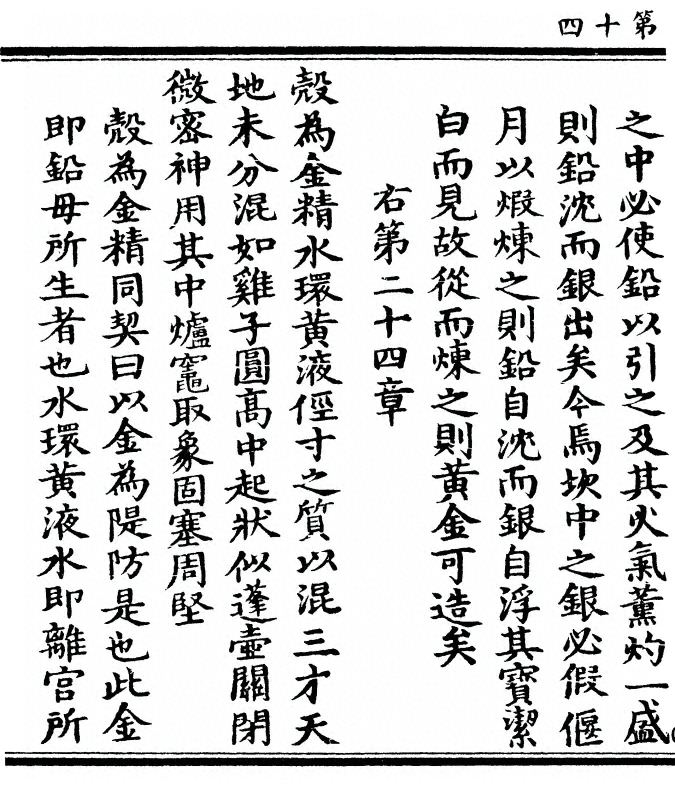 第十四
之中必使鉛以引之及其火氣薰灼一盛
則鉛沈而銀出矣今焉坎中之銀必假偃
月以煅煉之則鉛自沈而銀自浮其寶潔
白而見故從而煉之則黃金可造矣
右第二十四章
殼為金精水環黃液徑寸之質以混三才天
地未分混如雞子圓高中起狀似蓬壺關閉
微密神用其中爐竈取象固塞周堅
殼為金精同契曰以金為隄防是也此金
即鉛母所生者也水環黃液水即離宮所